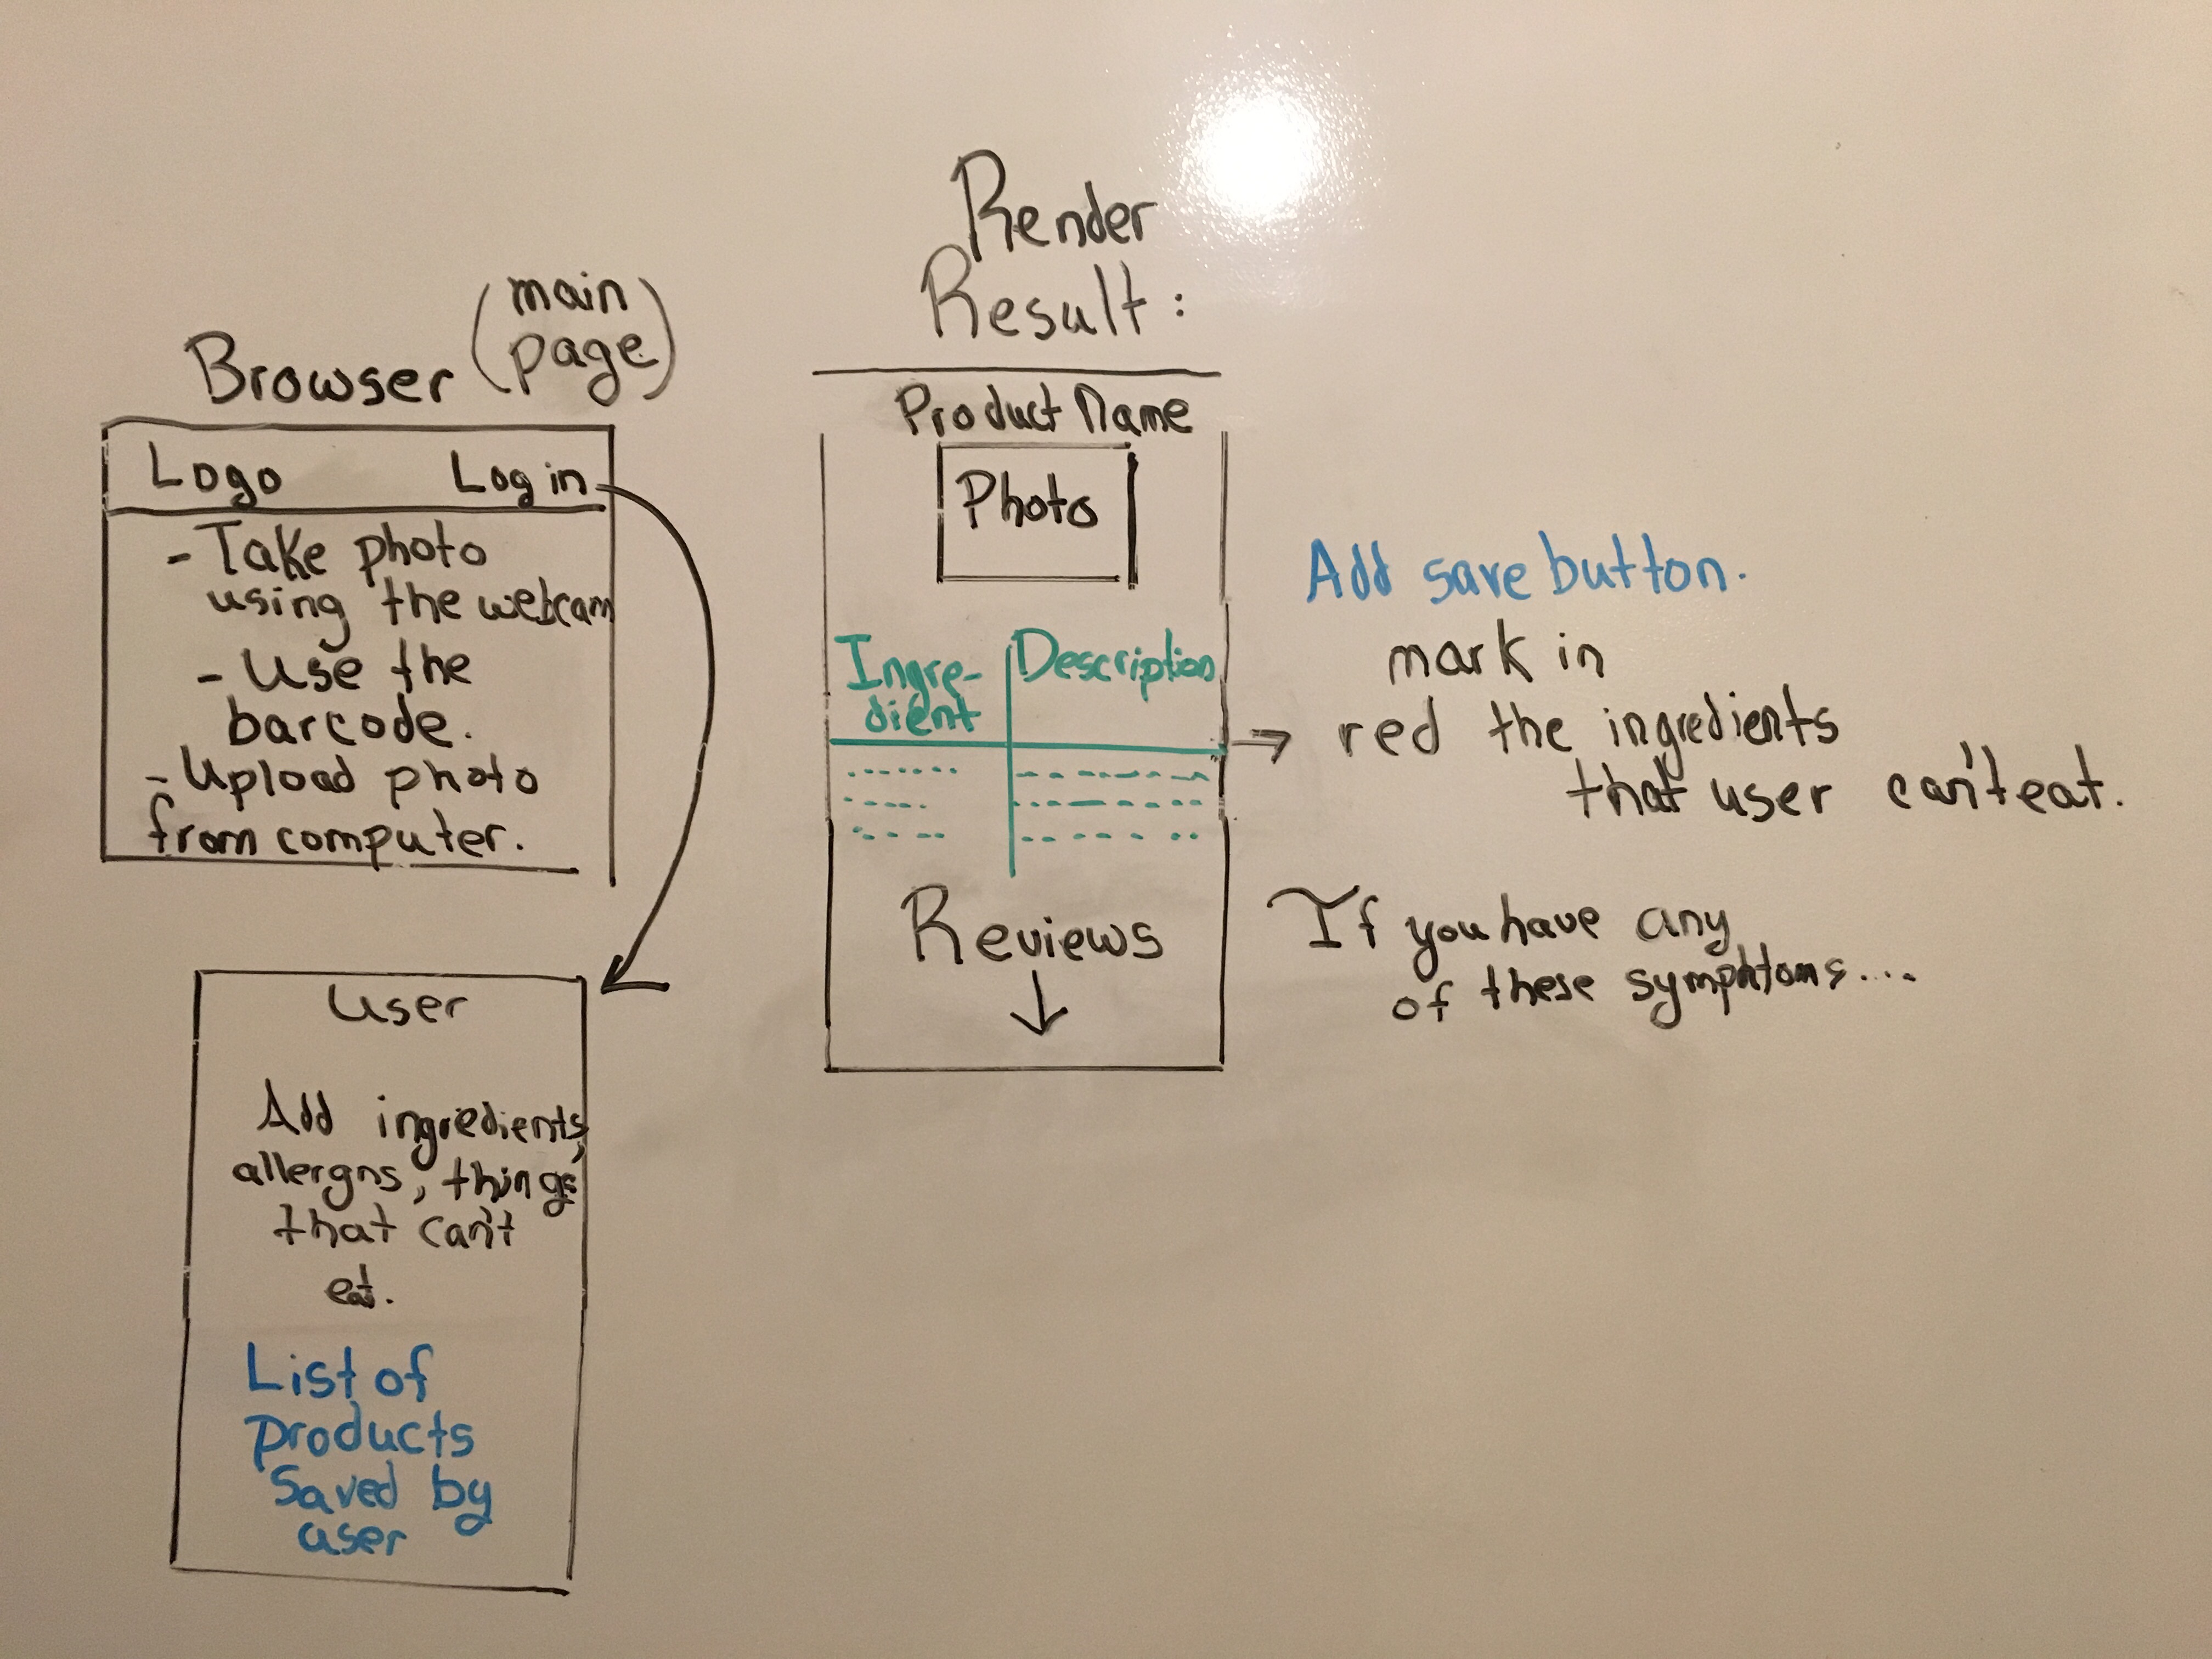 Browser (main page)
Logo Log in
- Take photo
using the webcam
- Use the
barcode.
- Upload photo
from computer.
User
Add ingredients,
allergns, things
that can't
eat.
List of
products
saved by
user
Render
Result:
Product Name
Photo
Ingre- Description
dient
Reviews
Add save button.
mark in
red the ingredients
that user can't eat.
If you have any
of these symphtoms...